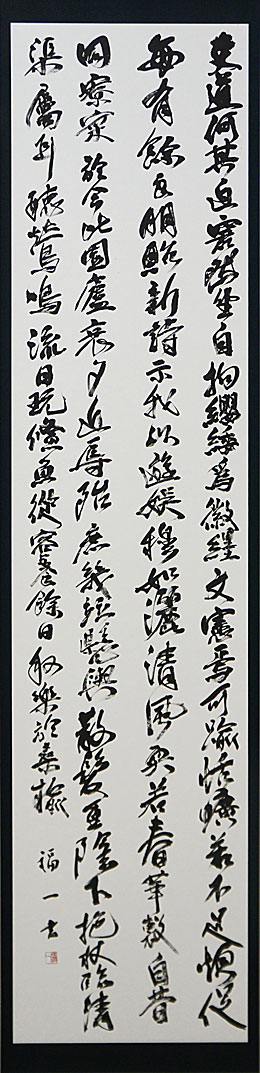 吏道何其迫窘然坐自拘纓緌爲徽纆文憲焉可踰恬曠苦不足煩促
每有餘良朋貽新詩示我以遊娯穆如灑清風奐若春華敷自昔
同寮寀於今比園廬衰夕近辱殆庶幾並懸輿散髮重陰下抱杖臨清
渠屬耳聴鶯鳴流目玩儵魚從容養餘日取樂於桑榆 福一書